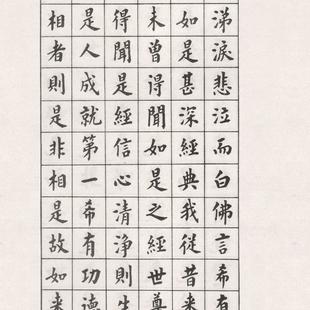 涕淚悲泣而白佛言希有
如是甚深經典我從昔來
未曾得聞如是之經世尊
得聞是經信心清淨則生
是人成就第一希有功德
相者則是非相是故如來